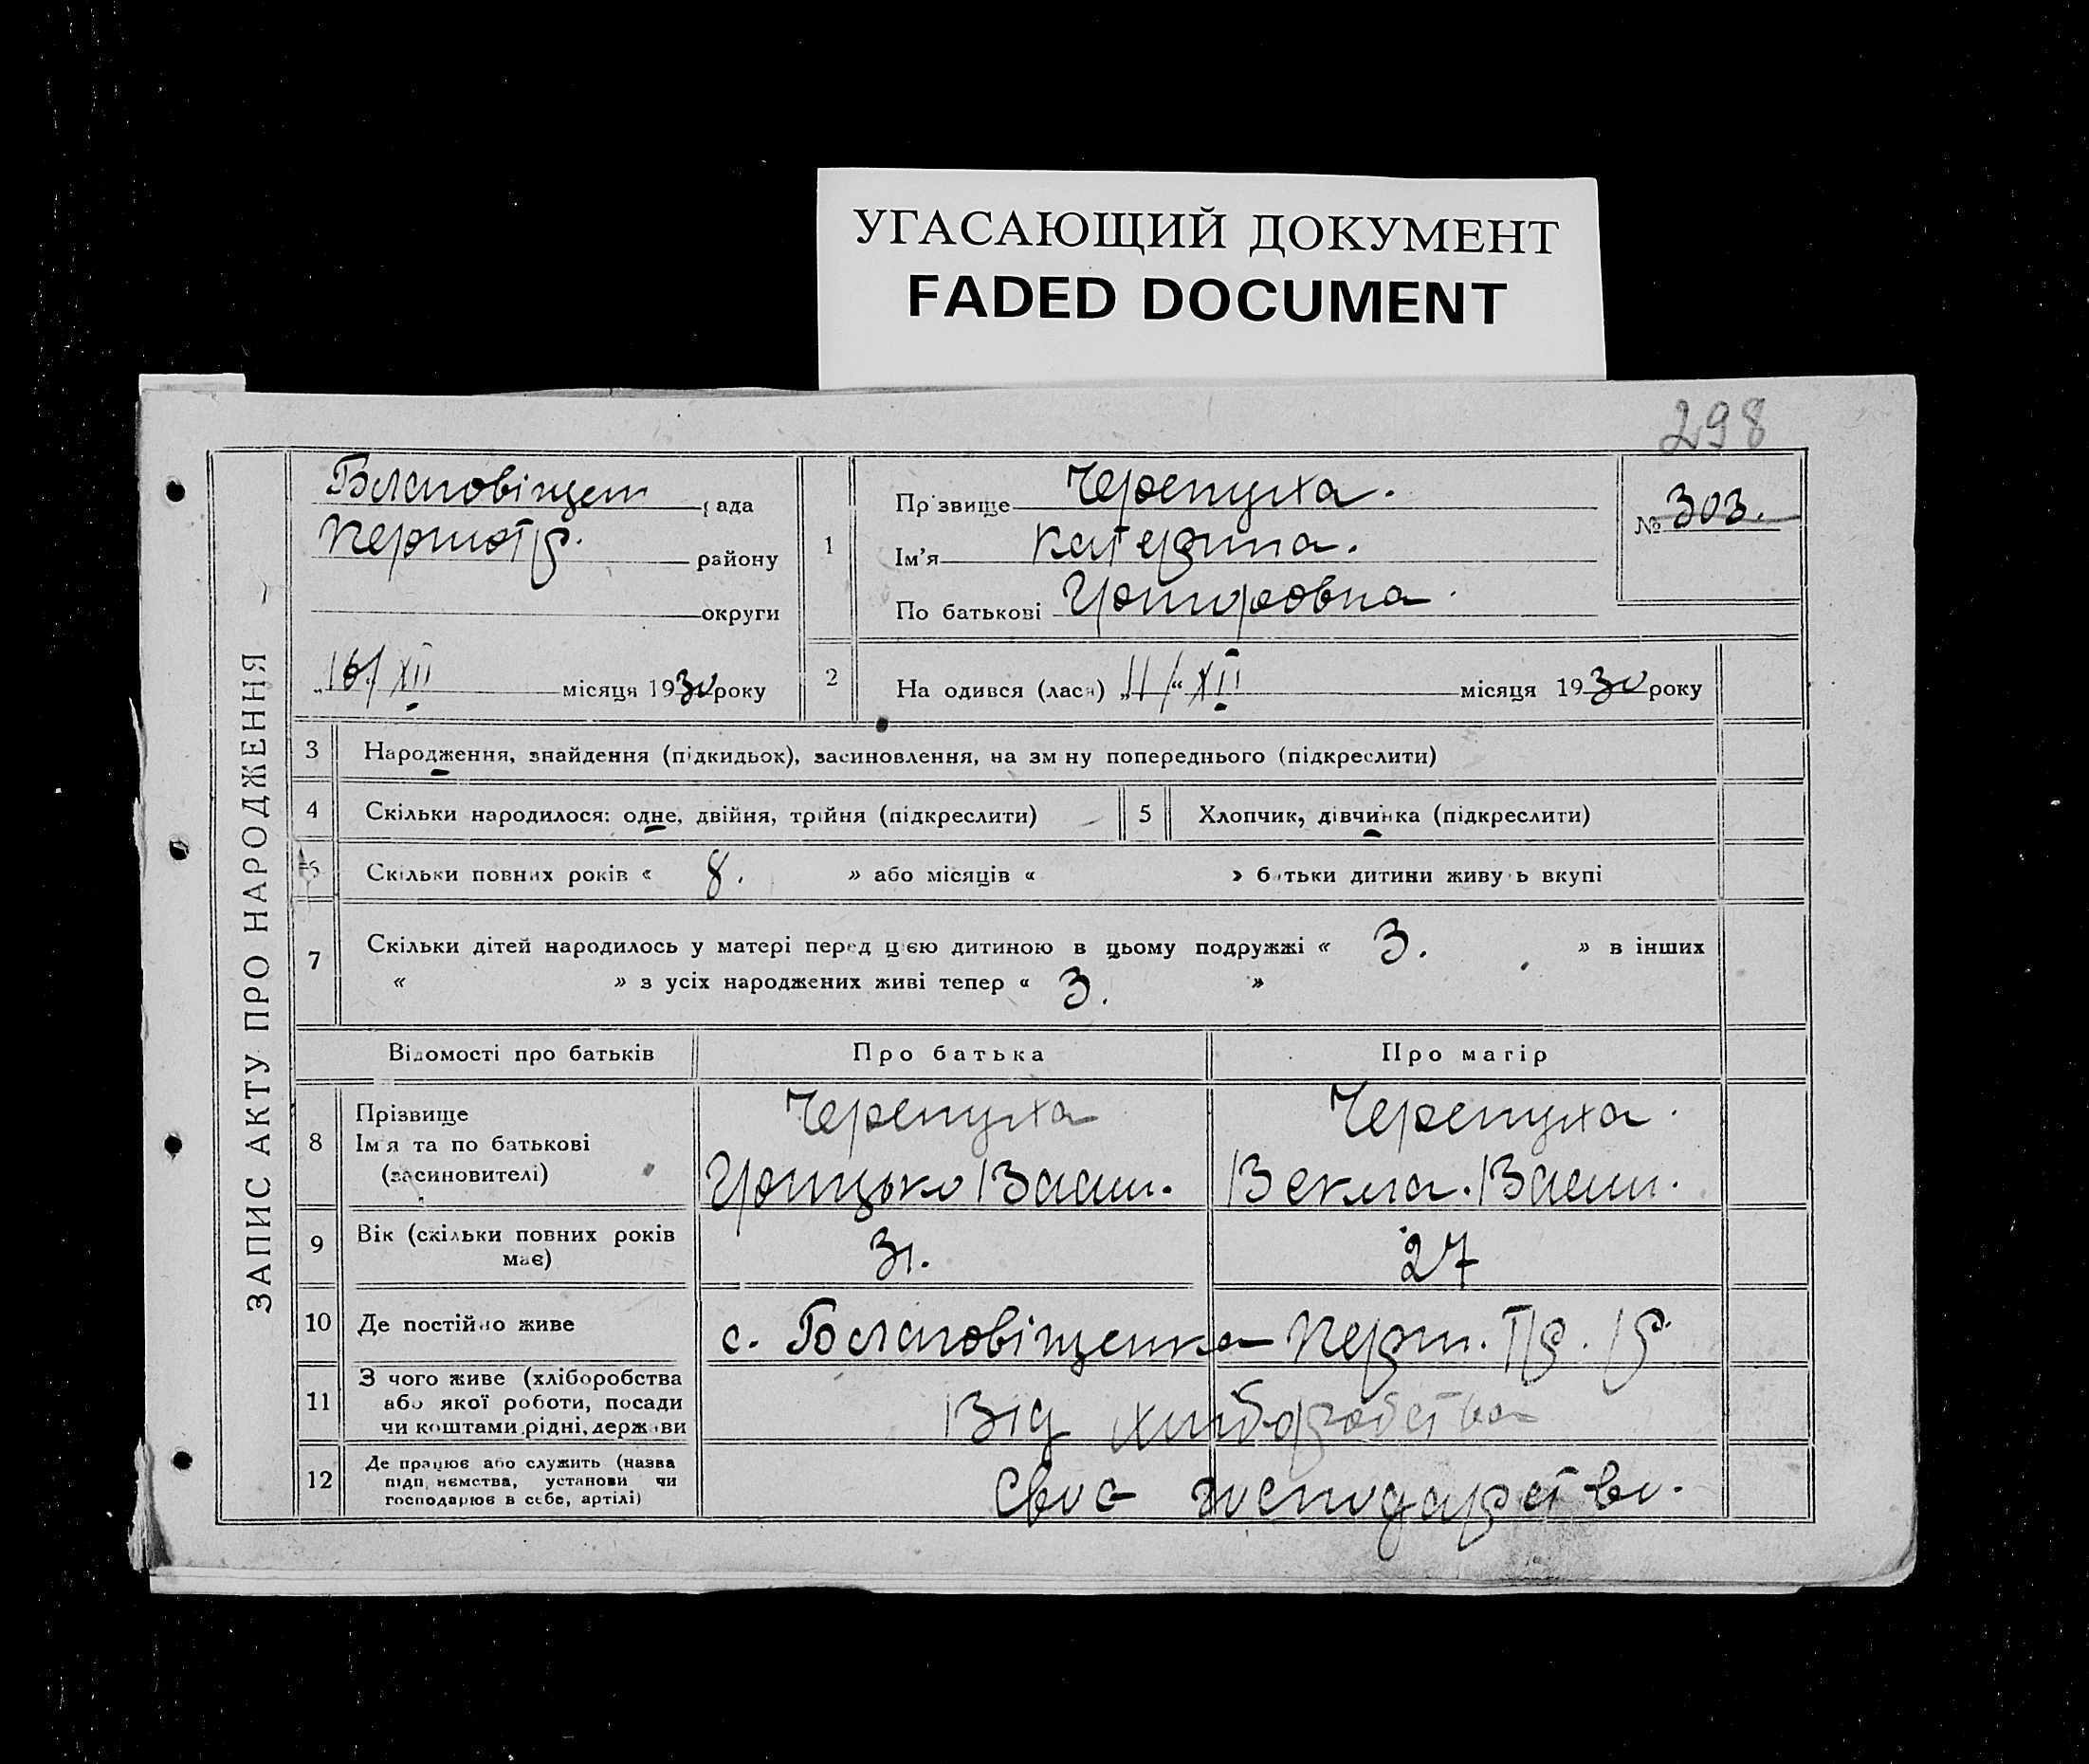 УГАСАЮЩИЙ ДОКУМЕНТ
FADED DOCUMENT
298
ЗАПИС АКТУ ПРО НАРОДЖЕННЯ
Благовіщен рада
Першотр. району
округи
„16/XII місяця 1930 року
1
Прізвище Черепуха.
Ім'я Катерина.
По батькові Григоровна
№ 303.
2 На одився (лася) „11/“ XII місяця 1930 року
3 Народження, знайдення (підкидьок), засиновлення, на зм ну попереднього (підкреслити)
4 Скільки народилося: одне, двійня, трійня (підкреслити) 5 Хлопчик, дівчинка (підкреслити)
6 Скільки повних років « 8. » або місяців « » батьки дитини живуть вкупі
7 Скільки дітей народилось у матері перед цією дитиною в цьому подружжі « 3. » в інших
« » з усіх народжених живі тепер « 3. »
Відомості про батьків Про батька Про матір
8 Прізвище Черепуха Черепуха.
Ім'я та по батькові
(засиновителі) Грицько Васил. Векла. Васил.
9 Вік (скільки повних років має) 31. 27
10 Де постійно живе с. Благовіщенка Перш. Тр. р.
11 З чого живе (хліборобства
або якої роботи, посади
чи коштами рідні, держави Від хліборобства
12 Де працює або служить (назва
підп иємства, установи чи
господарює в себе, артілі) Своє господарство.